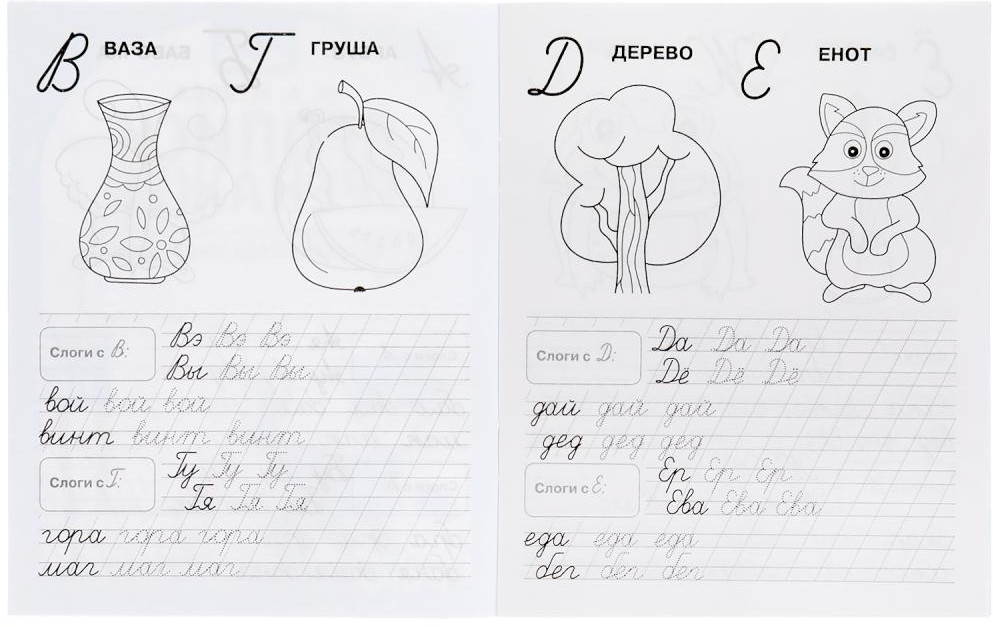 В ВАЗА Г ГРУША
Слоги с В:
Вэ Вэ Вэ
Вы Вы Вы
вой вой вой
винт винт винт
Слоги с Г:
Гу Гу Гу
Гя Гя Гя
гора гора гора
маг маг маг
Д ДЕРЕВО Е ЕНОТ
Слоги с Д:
Да Да Да
Дё Дё Дё
дай дай дай
дед дед дед
Слоги с Е:
Ер Ер Ер
Ева Ева Ева
еда еда еда
бег бег бег